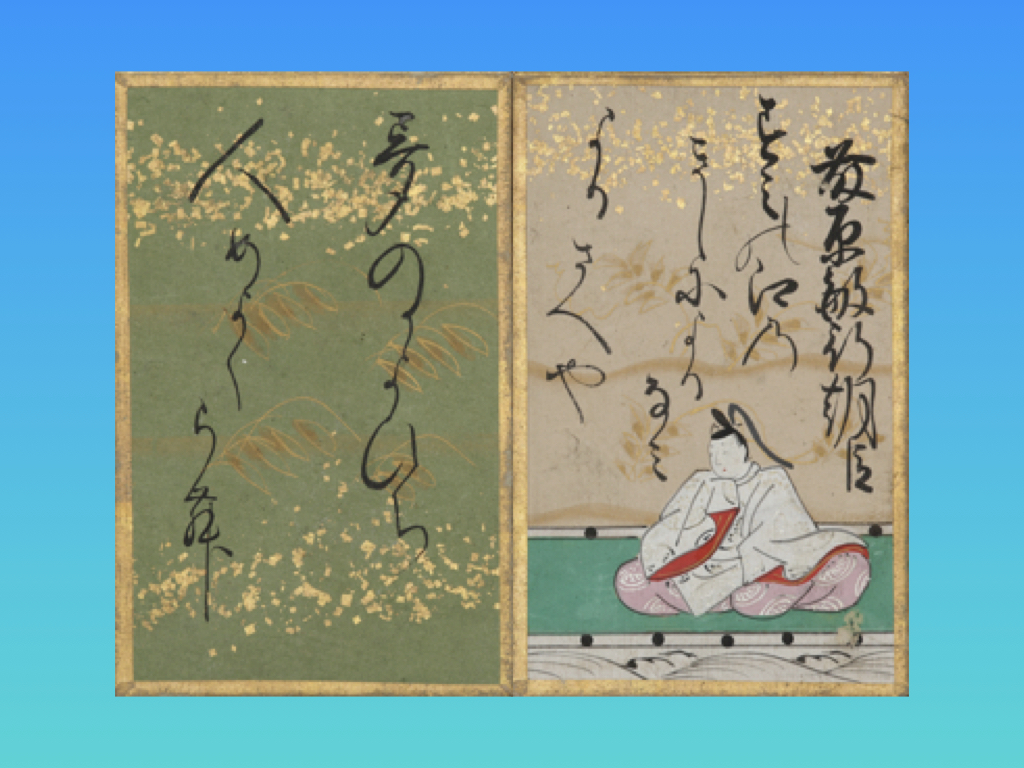 藤原敏行朝臣
すみの江の
きしによる
なみ
よるさへや
夢のかよひち
人めよく
らむ